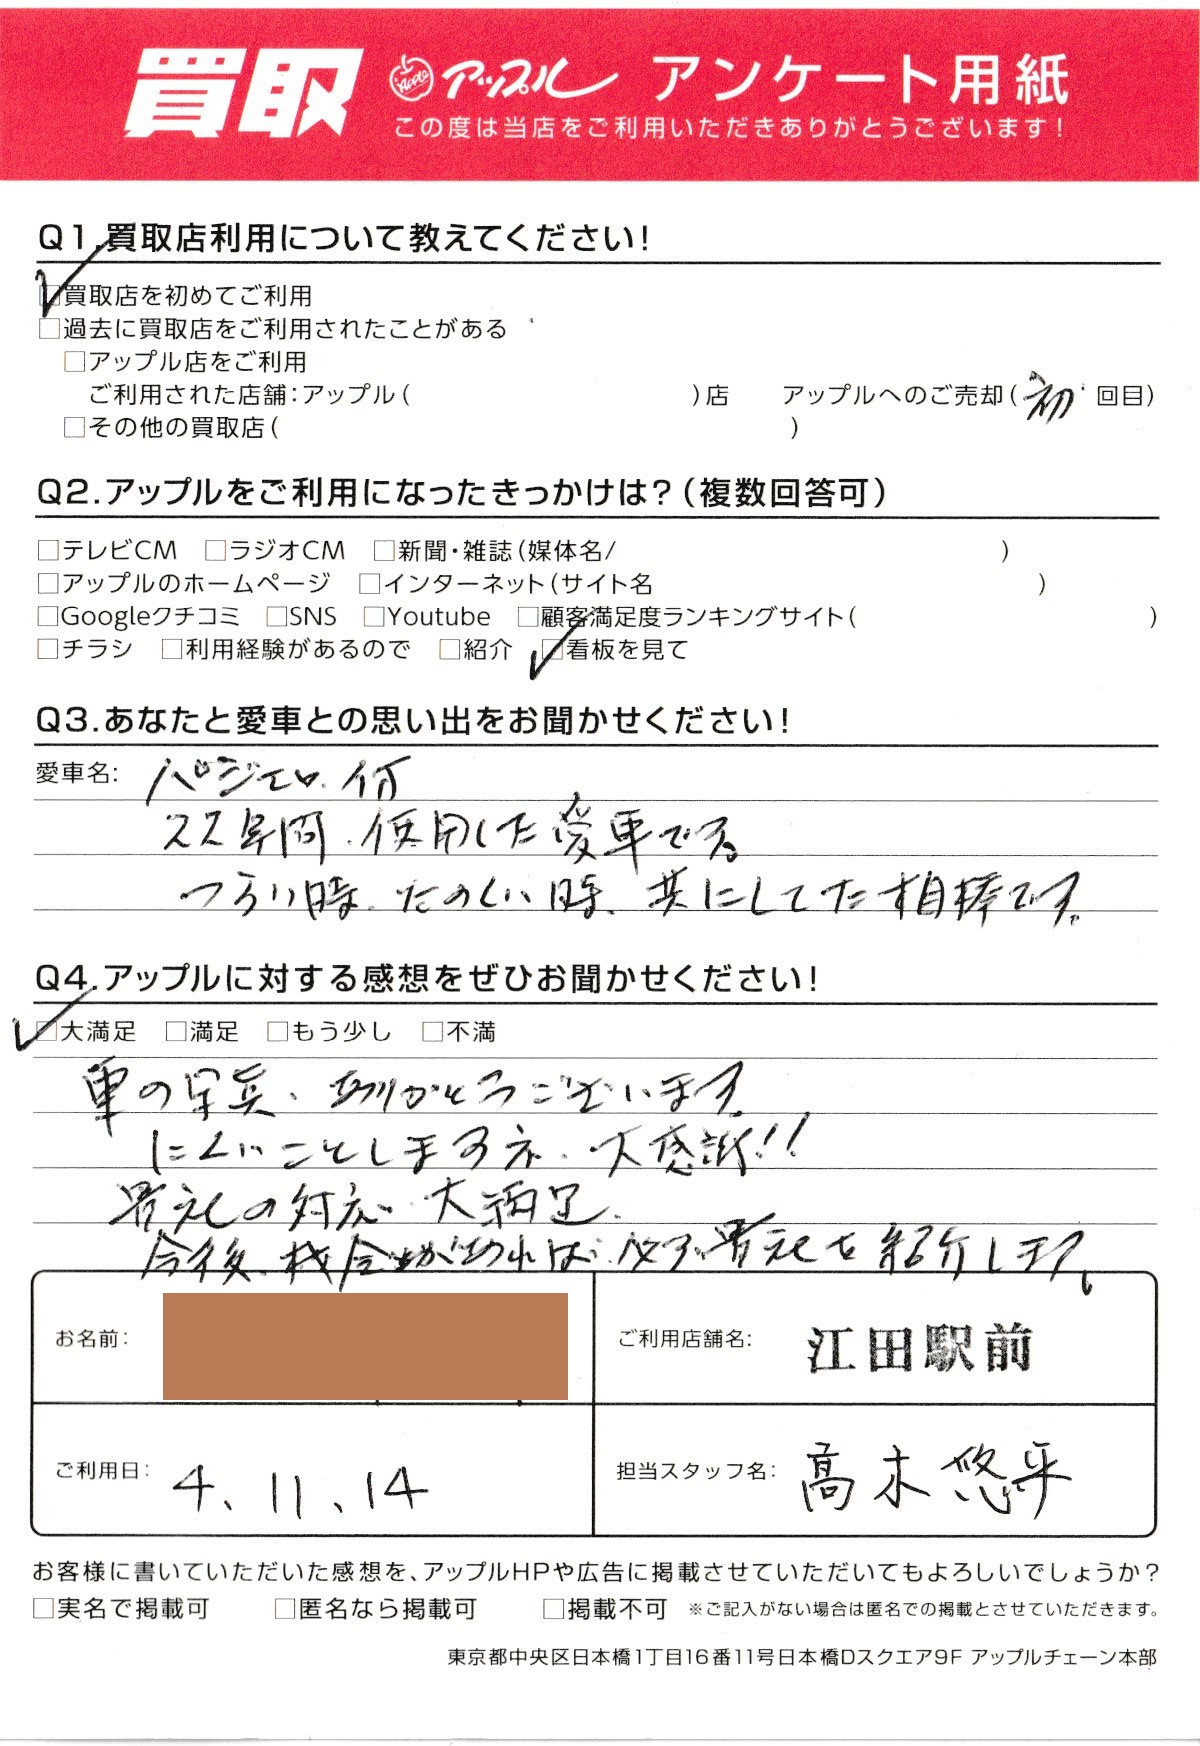 買取 Apple アップル アンケート用紙
この度は当店をご利用いただきありがとうございます!
Q1.買取店利用について教えてください!
□買取店を初めてご利用
□過去に買取店をご利用されたことがある
□アップル店をご利用
ご利用された店舗:アップル( )店 アップルへのご売却(初回目)
□その他の買取店( )
Q2.アップルをご利用になったきっかけは?(複数回答可)
□テレビCM □ラジオCM □新聞・雑誌(媒体名/ )
□アップルのホームページ □インターネット(サイト名 )
□Googleクチコミ □SNS □Youtube □顧客満足度ランキングサイト( )
□チラシ □利用経験があるので □紹介 □看板を見て
Q3.あなたと愛車との思い出をお聞かせください!
愛車名: パジェロ
22年間、使用した愛車です。
つらい時、たのしい時、共にしてた相棒です。
Q4.アップルに対する感想をぜひお聞かせください!
□大満足 □満足 □もう少し □不満
車の写真、ありがとうございます。
にくいことしますネ、大感謝!!
貴社の対応、大満足。
今後、機会があれば、必ず、貴社を紹介します。
お名前:
ご利用店舗名: 江田駅前
ご利用日: 4、11、14
担当スタッフ名: 髙木悠平
お客様に書いていただいた感想を、アップルHPや広告に掲載させていただいてもよろしいでしょうか?
□実名で掲載可 □匿名なら掲載可 □掲載不可 ※ご記入がない場合は匿名での掲載とさせていただきます。
東京都中央区日本橋1丁目16番11号日本橋Dスクエア9F アップルチェーン本部